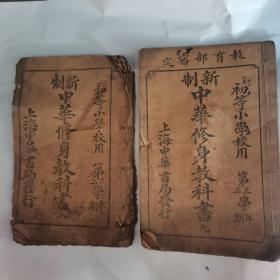 初等小學校用
新制
中華修身教科書
第二學年
上海中華書局發行
教育部審定
初等小學校用
新制
中華修身教科書
九
第三學年
第三期
上海中華書局發行